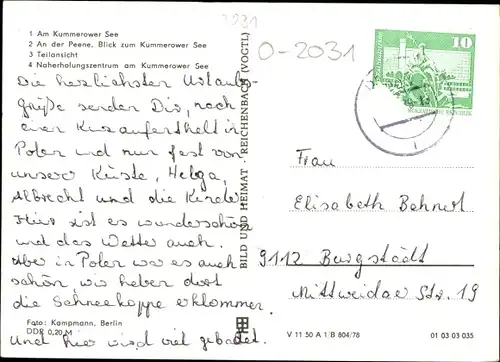 2031
0-2031
1 Am Kummerower See
2 An der Peene, Blick zum Kummerower See
3 Teilansicht
4 Naherholungszentrum am Kummerower See
Die herzlichsten Urlaubs-
grüße senden Dir, nach
einem Kurzaufenthalt in
Polen und nun fest von
unserer Küste, Helga,
Albrecht und die Kinder
Hier ist es wunderschön
und das Wetter auch.
Aber in Polen war es auch
schön, wir haben dort
die Schneekoppe erklommen.
Und hier wird viel gebadet.
Foto: Kampmann, Berlin
DDR 0,20 M
BILD UND HEIMAT · REICHENBACH (VOGTL)
10
Frau
Elisabeth Behnert
9112 Burgstädt
Mittweidaer Str. 19
V 11 50 A 1/B 804/78
01 03 03 035